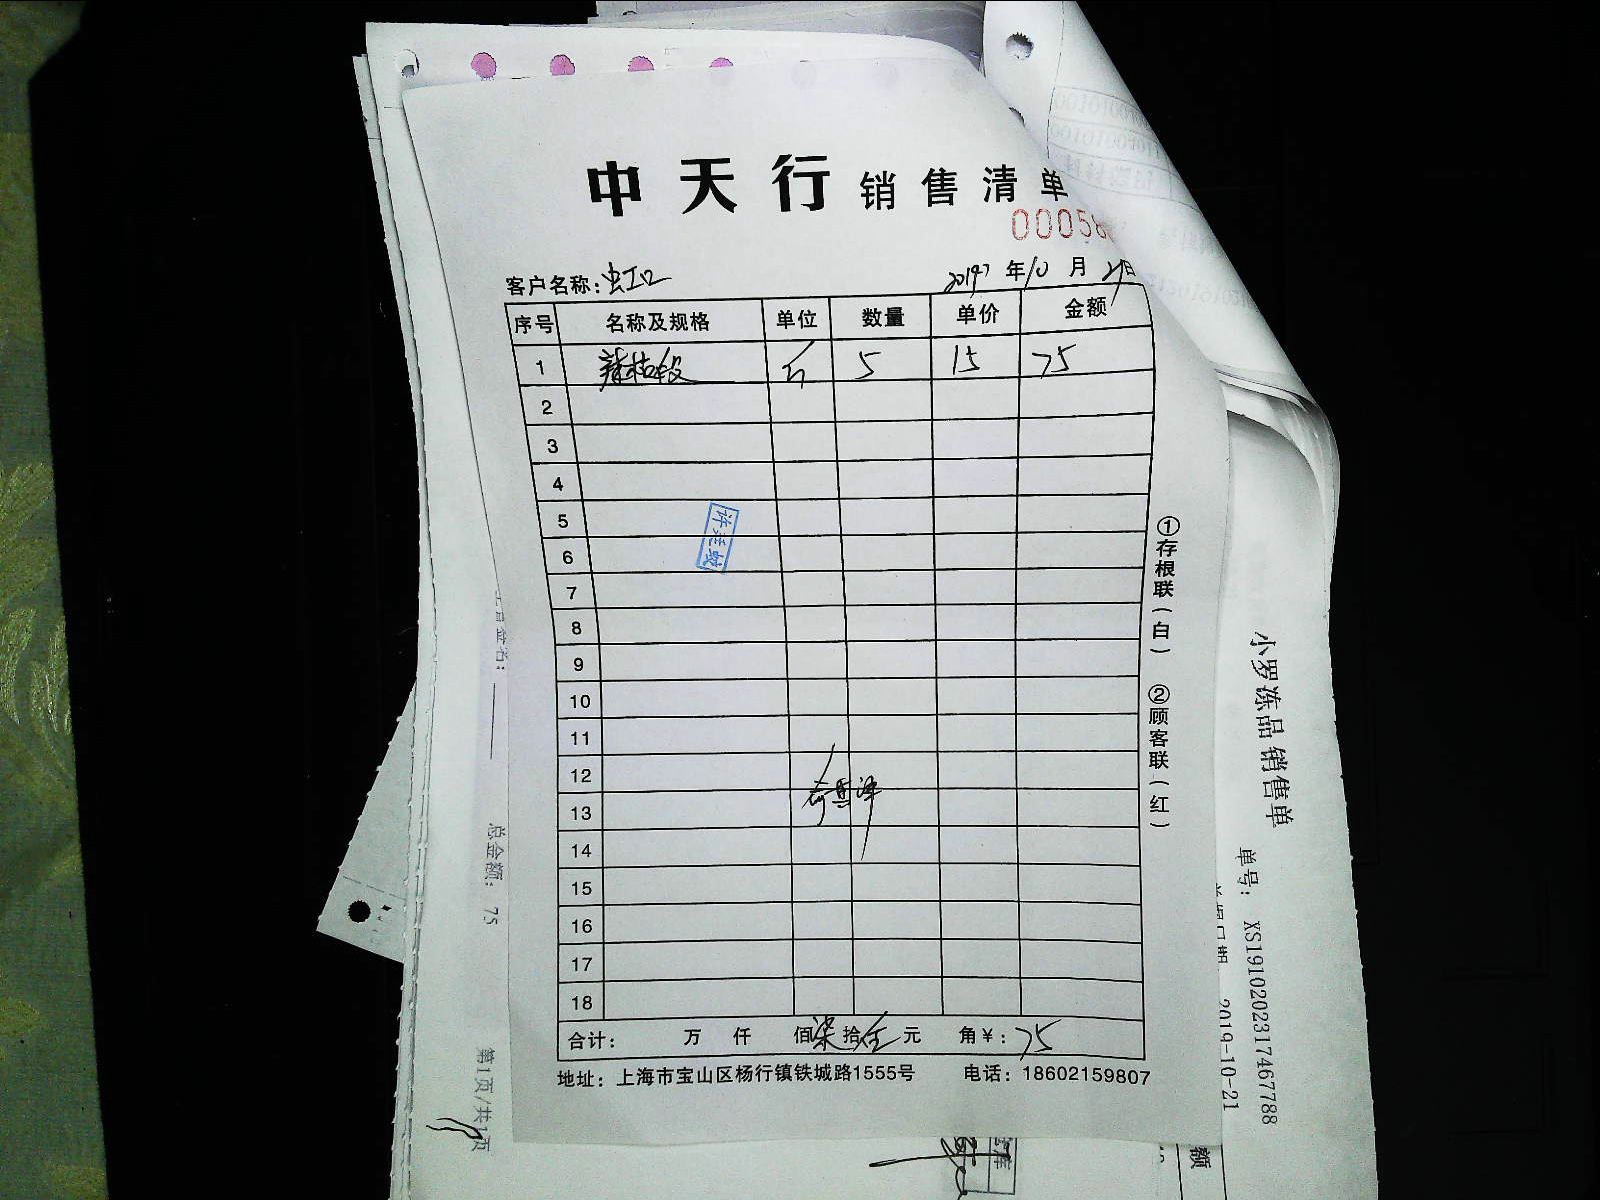 中天行 销售清单
00058
客户名称：虹口
2019年10月21日
序号 名称及规格 单位 数量 单价 金额
1 辣椒段 斤 5 15 75
2
3
4
5
6
7
8
9
10
11
12
13
14
15
16
17
18
合计： 万 仟 佰 柒 拾 伍 元 角 ￥：75
地址：上海市宝山区杨行镇铁城路1555号 电话：18602159807
①存根联（白） ②顾客联（红）
小罗冻品销售单
单号： XS191020231746​7788
2019-10-21
总金额： 75
第1页/共1页
额